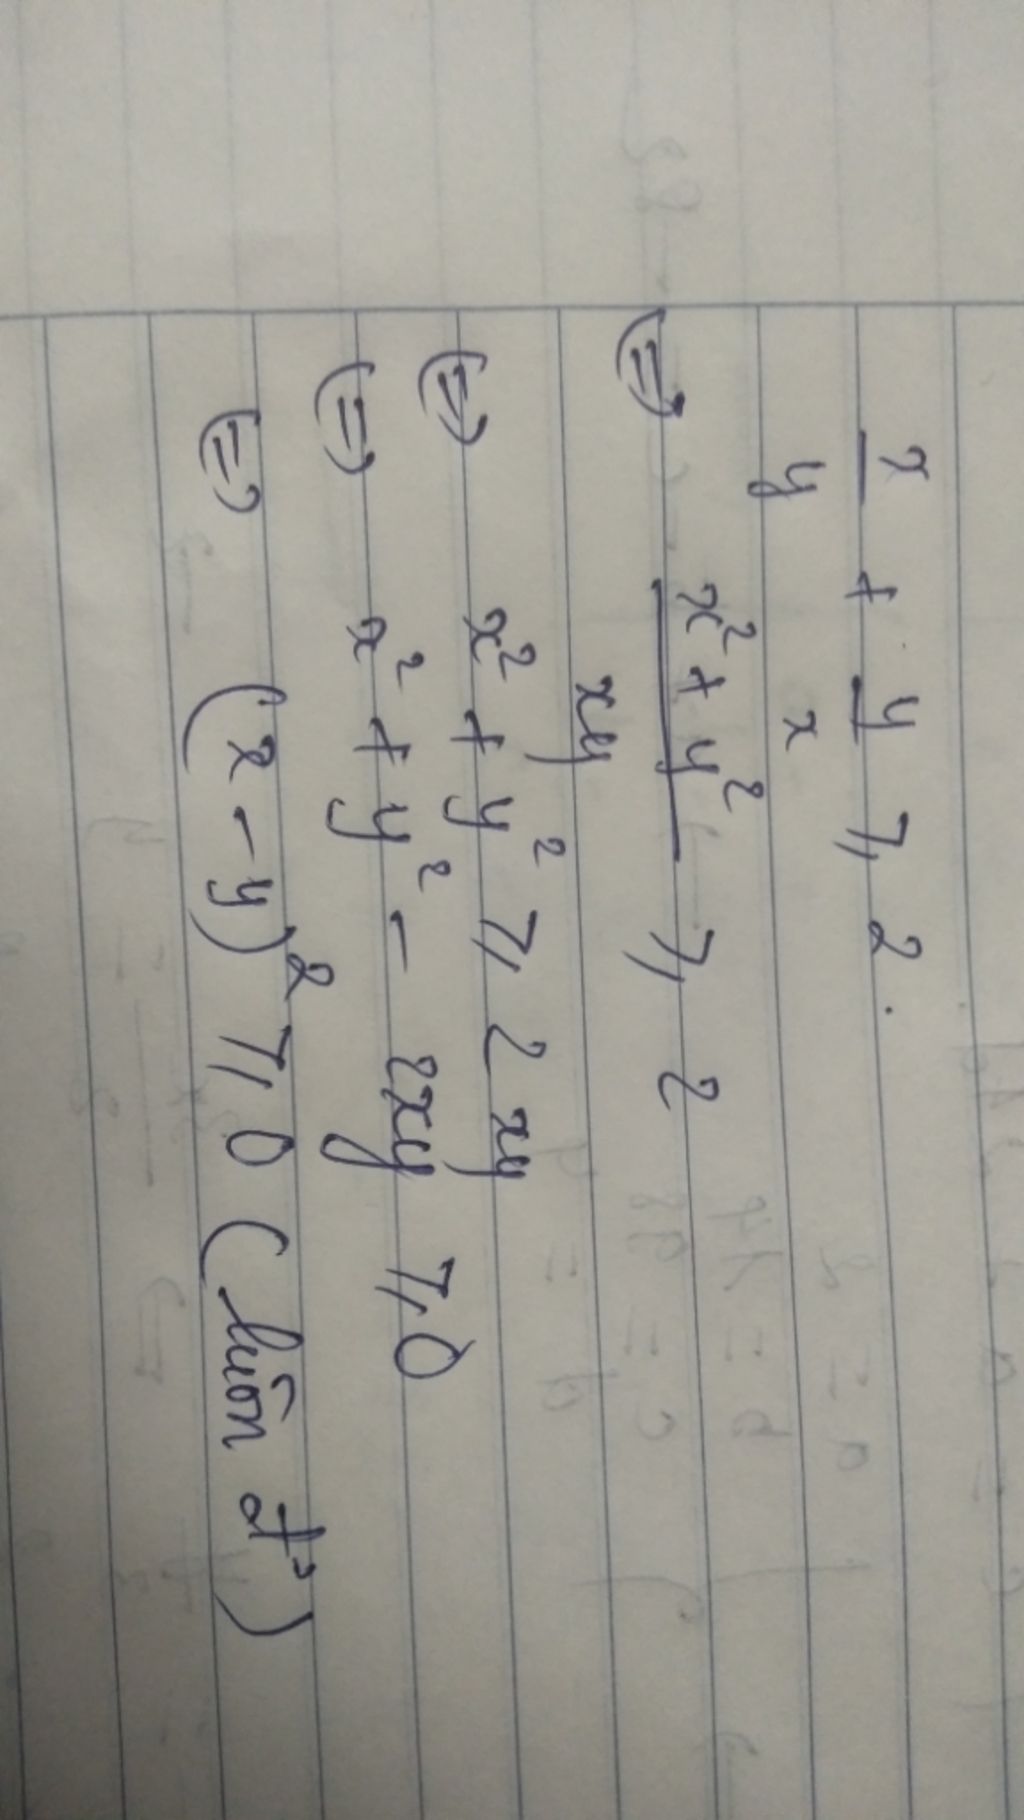 x/y + y/x ⩾ 2.
⇔ (x² + y²)/xy ⩾ 2
⇔ x² + y² ⩾ 2xy
⇔ x² + y² - 2xy ⩾ 0
⇔ (x - y)² ⩾ 0 (luôn đ²)